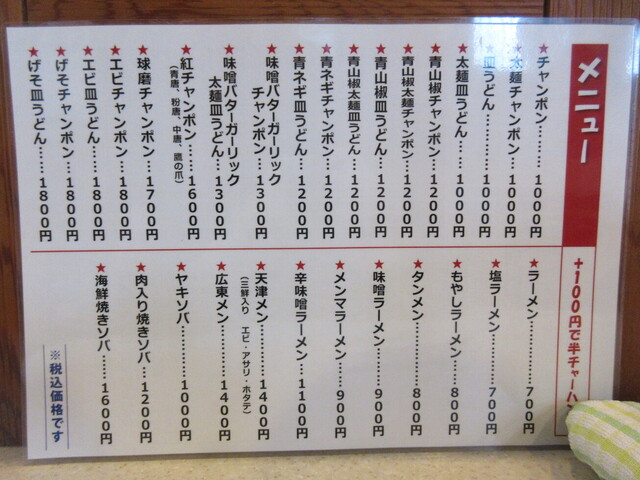 メニュー
★チャンポン………1000円
★太麺チャンポン…1000円
皿うどん…………1000円
★太麺皿うどん……1000円
★青山椒チャンポン…1200円
★青山椒太麺チャンポン…1200円
★青山椒皿うどん……1200円
★青山椒太麺皿うどん…1200円
★青ネギチャンポン…1200円
★青ネギ皿うどん……1200円
★味噌バターガーリック
チャンポン…1300円
★味噌バターガーリック
太麺皿うどん…1300円
★紅チャンポン……1600円
(青唐、粉唐、中唐、鷹の爪)
★球磨チャンポン…1700円
★エビチャンポン…1800円
★エビ皿うどん……1800円
★げそチャンポン…1800円
★げそ皿うどん……1800円
+100円で半チャーハン
★ラーメン…………700円
★塩ラーメン………700円
★もやしラーメン……800円
★タンメン…………800円
★味噌ラーメン……900円
★メンマラーメン……900円
★辛味噌ラーメン…1100円
★天津メン…………1400円
(三鮮入り エビ・アサリ・ホタテ)
★広東メン…………1400円
★ヤキソバ…………1000円
★肉入り焼きソバ…1200円
★海鮮焼きソバ……1600円
※税込価格です